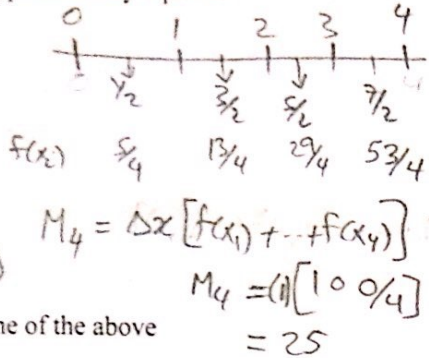 0 1 2 3 4
1/2 3/2 5/2 7/2
f(xᵢ) 5/4 13/4 29/4 53/4
M₄ = Δx [f(x₁) + ... + f(x₄)]
M₄ = (1)[100/4]
ne of the above
= 25